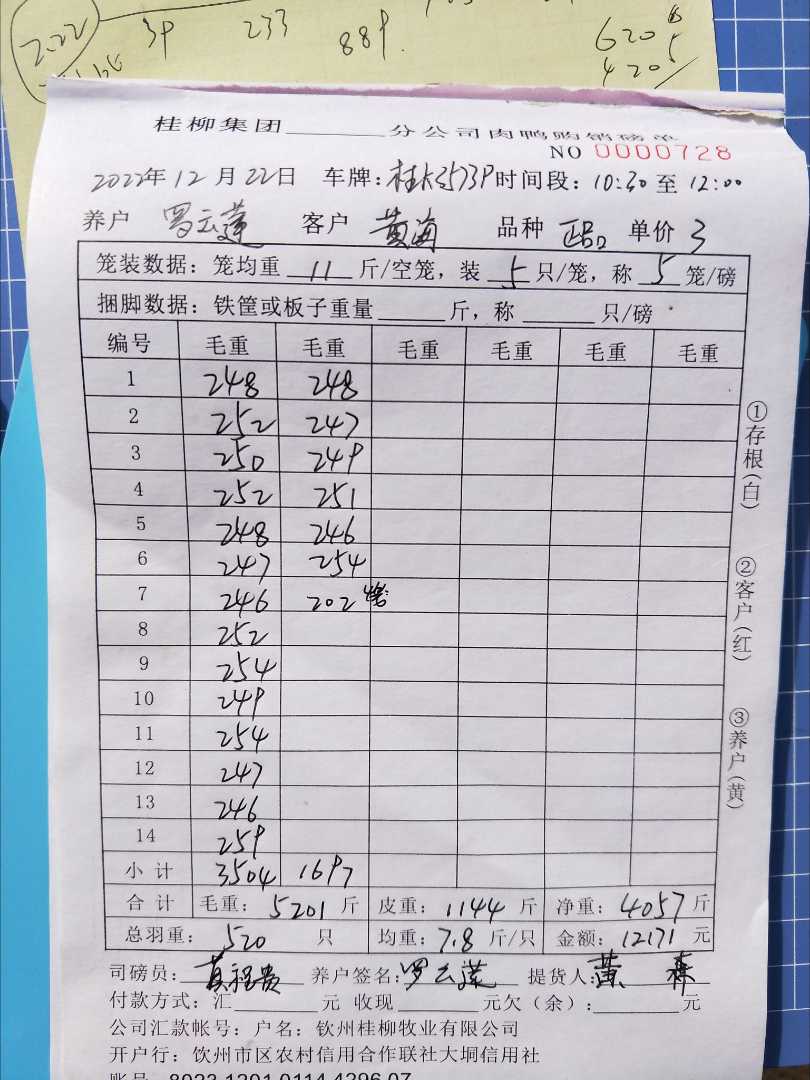 2.22 39 233 889. 6206
5
4205
桂柳集团______分公司肉鸭购销磅单
NO 0000728
2022年12月22日 车牌:桂K3573P 时间段:10:30至12:00
养户 罗云莲 客户 黄海 品种 正品 单价 3
笼装数据:笼均重 11 斤/空笼,装 5 只/笼,称 5 笼/磅
捆脚数据:铁筐或板子重量______斤,称______只/磅
编号 毛重 毛重 毛重 毛重 毛重 毛重
1 248 248
2 252 247
3 250 249
4 252 251
5 248 246
6 247 254
7 246 202 4笼
8 252
9 254
10 249
11 254
12 247
13 246
14 259
小计 3504 1697
合计 毛重:5201斤 皮重:1144斤 净重:4057斤
总羽重:520只 均重:7.8斤/只 金额:12171元
①存根(白)
②客户(红)
③养户(黄)
司磅员: 养户签名:罗云莲 提货人:黄森
付款方式:汇______元 收现______元欠(余):______元
公司汇款帐号:户名:钦州桂柳牧业有限公司
开户行:钦州市区农村信用合作联社大垌信用社
账号 8023 1201 0114 4296 07